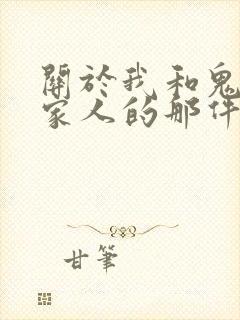 關於我和鬼
家人的那件
甘筆